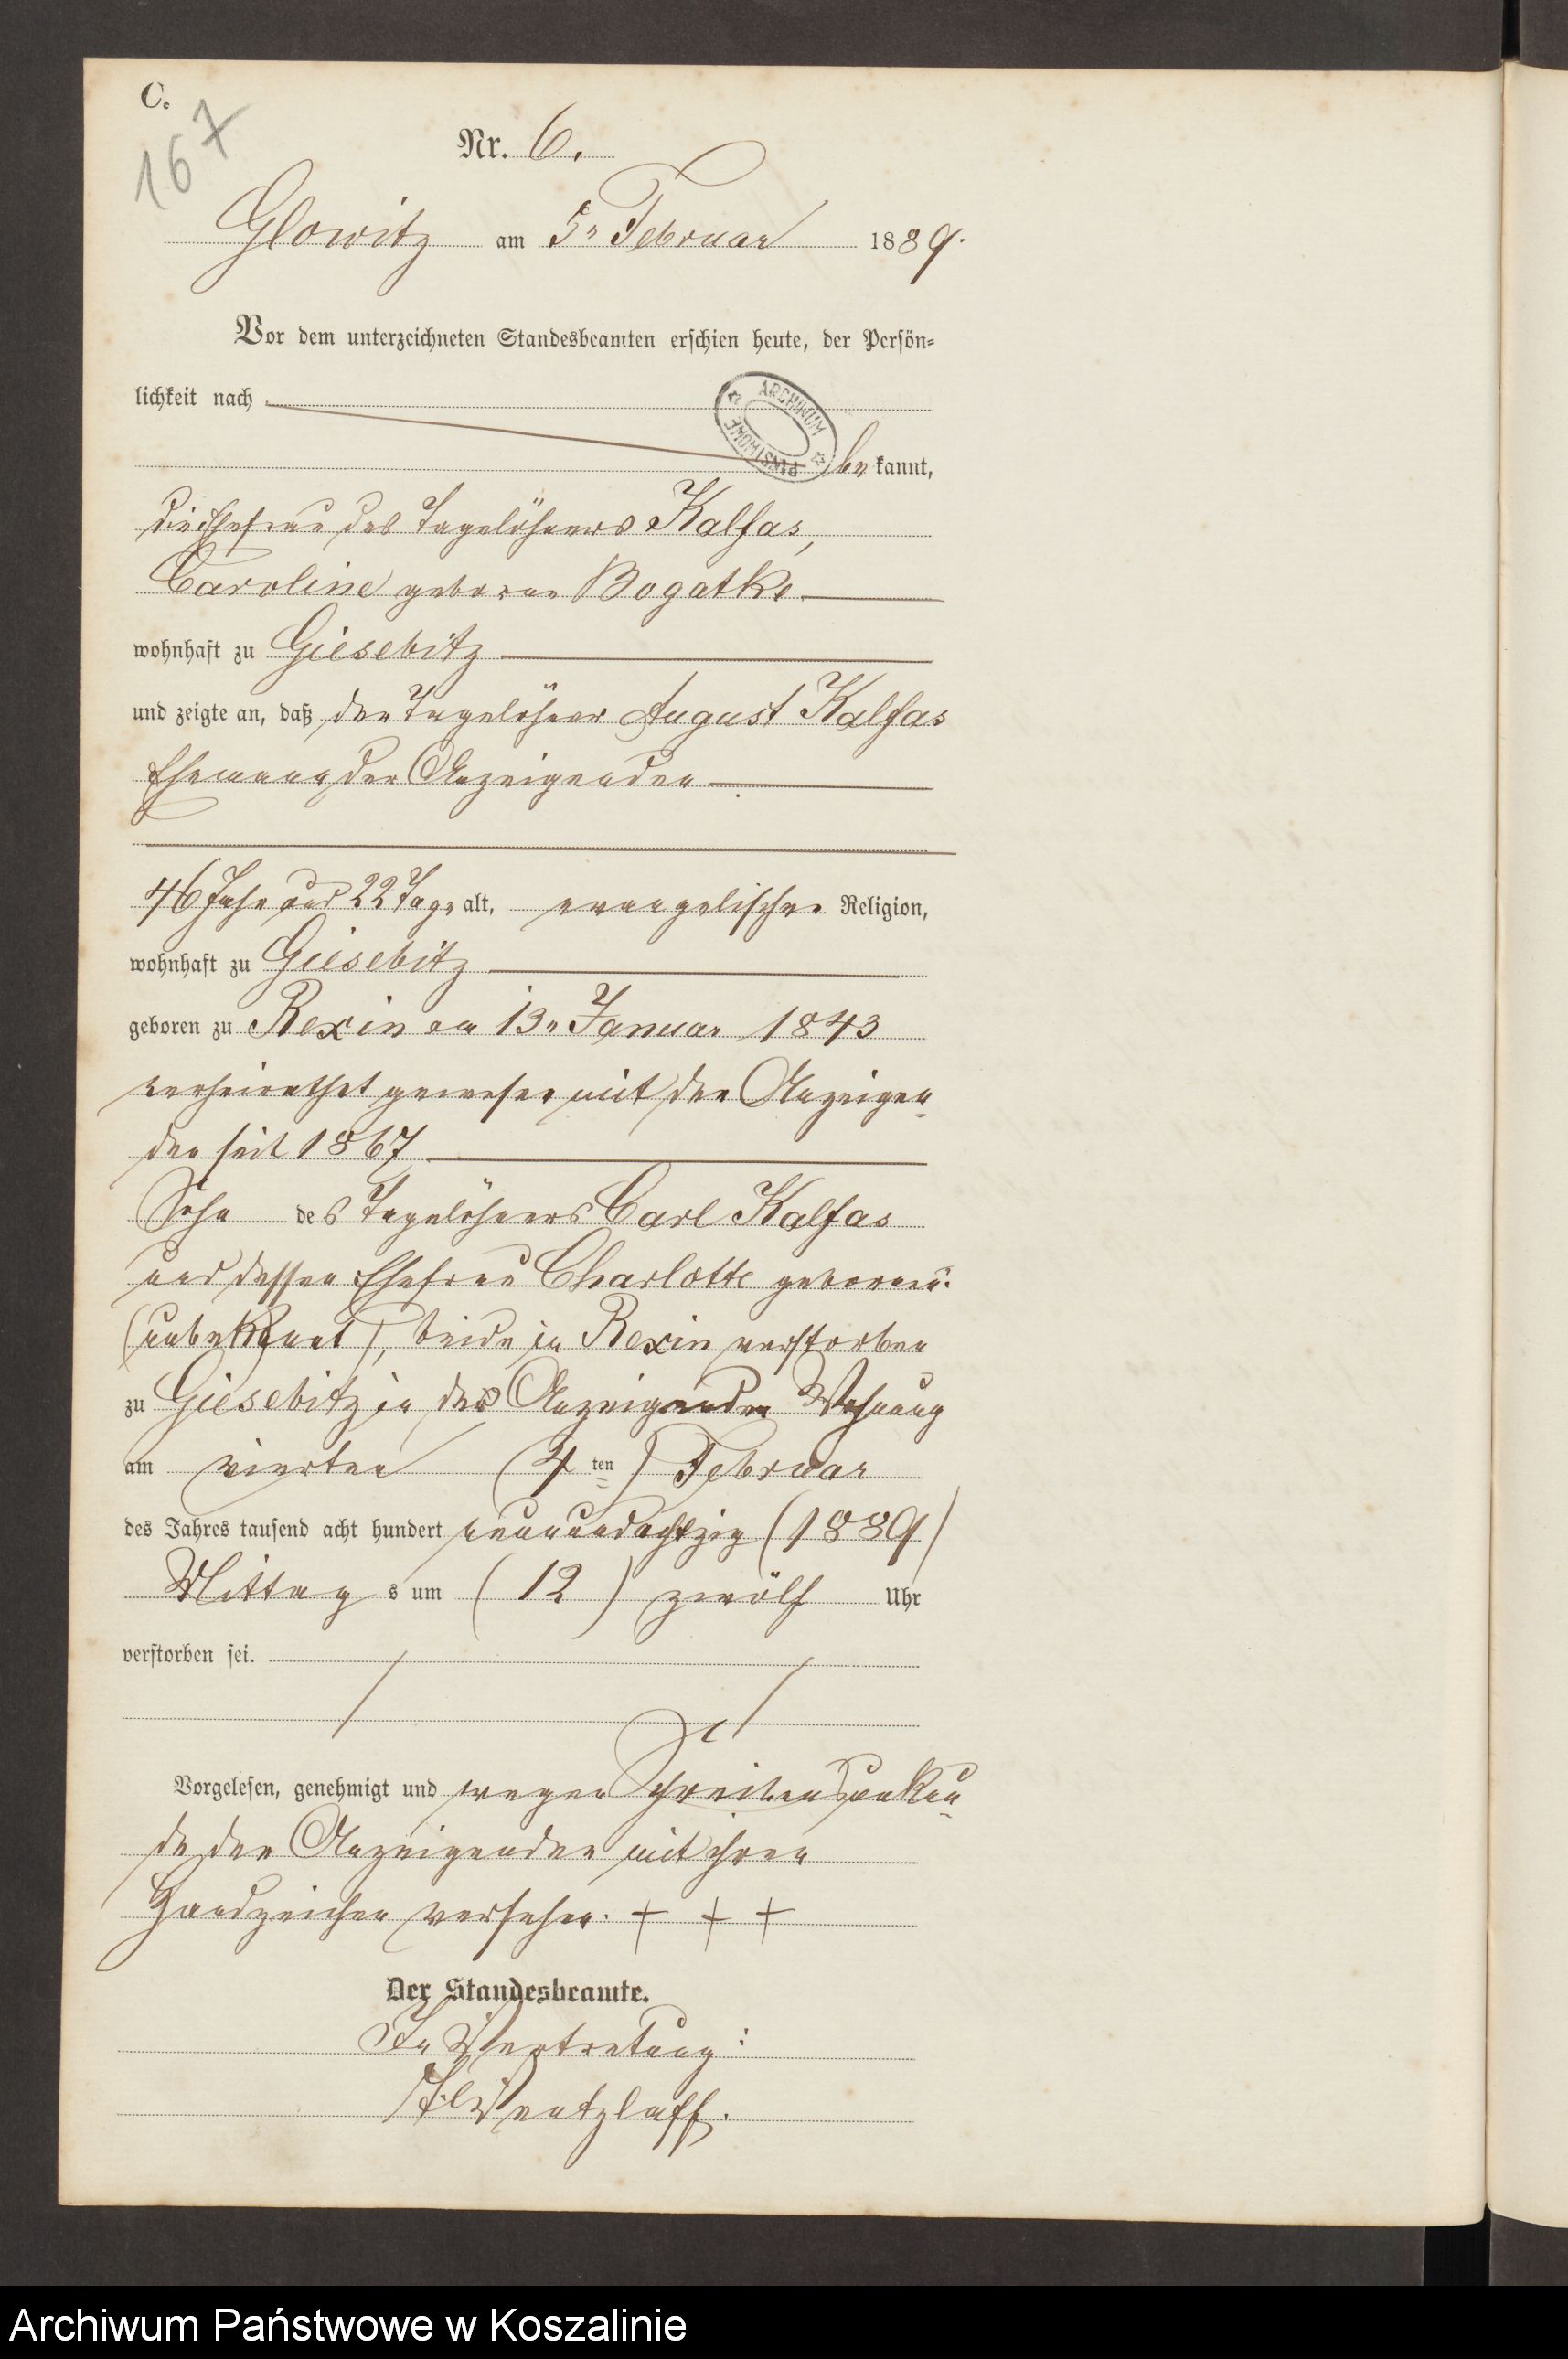 C.
167
Nr. 6.
Glowitz am 5n Februar 1889.
Vor dem unterzeichneten Standesbeamten erschien heute, der Persön=
lichkeit nach
ARCHIWUM PAŃSTWOWE
be kannt,
die Ehefrau des Tagelöhners Kalfas,
Caroline geborne Bogatke
wohnhaft zu Giesebitz
und zeigte an, daß der Tagelöhner August Kalfas
Ehemann der Anzeigenden
46 Jahr und 22 Tage alt, evangelischer Religion,
wohnhaft zu Giesebitz
geboren zu Rexin am 13n Januar 1843
verheirathet gewesen mit der Anzeigen-
den seit 1867
Sohn des Tagelöhners Carl Kalfas
und dessen Ehefrau Charlotte geborene
(unbekannt), beide in Rexin verstorben
zu Giesebitz in der Anzeigenden Wohnung
am vierten (4 ten) Februar
des Jahres tausend acht hundert neunundachtzig (1889)
Mittag s um (12) zwölf Uhr
verstorben sei.
Vorgelesen, genehmigt und wegen Schreibensunkun-
de der Anzeigenden mit ihren
Handzeichen versehen. + + +
Der Standesbeamte.
In Vertretung:
Wentzlaff.
Archiwum Państwowe w Koszalinie